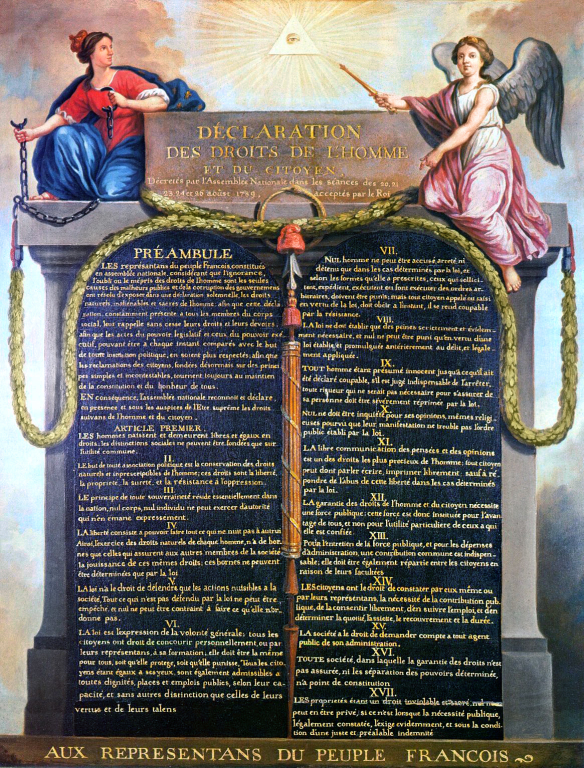 DÉCLARATION
DES DROITS DE L'HOMME
ET DU CITOYEN,
Décrétés par l'Assemblée Nationale dans les séances des 20, 21
23 24 et 26 août 1789, acceptés par le Roi
PRÉAMBULE
LES représentans du peuple Francois, constitués
en assemblée nationale, considérant que l'ignorance,
l'oubli ou le mépris des droits de l'homme sont les seules
causes des malheurs publics et de la corruption des gouvernemens
ont résolu d'exposer dans une déclaration solemnelle, les droits
naturels, inaliénables et sacrés de l'homme; afin que cette décla
ration, constamment présente à tous les membres du corps
social, leur rappelle sans cesse leurs droits et leurs devoirs;
afin que les actes du pouvoir législatif et ceux du pouvoir exé
cutif, pouvant être à chaque instant comparés avec le but
de toute institution politique, en soient plus respectés; afin que
les réclamations des citoyens, fondées désormais sur des princi
pes simples et incontestables, tournent toujours au maintien
de la constitution et du bonheur de tous.
EN conséquence, l'assemblée nationale reconnoit et déclare,
en présence et sous les auspices de l'Etre suprême les droits
suivans de l'homme et du citoyen.
ARTICLE PREMIER.
LES hommes naissent et demeurent libres et égaux en
droits; les distinctions sociales ne peuvent être fondées que sur
l'utilité commune.
II.
LE but de toute association politique est la conservation des droits
naturels et imprescriptibles de l'homme; ces droits sont la liberté,
la propriété, la sureté, et la résistance à l'oppression.
III.
LE principe de toute souveraineté réside essentiellement dans
la nation, nul corps, nul individu ne peut exercer d'autorité
qui n'en émane expressement.
IV.
LA liberté consiste à pouvoir faire tout ce qui ne nuit pas à autrui
Ainsi, l'exercice des droits naturels de chaque homme, n'a de bor
nes que celles qui assurent aux autres membres de la société
la jouissance de ces mêmes droits; ces bornes ne peuvent
être déterminées que par la loi
V.
LA loi n'a le droit de défendre que les actions nuisibles à la
société. Tout ce qui n'est pas défendu par la loi ne peut être
empêché, et nul ne peut être contraint à faire ce qu'elle n'or-
donne pas.
VI.
LA loi est l'expression de la volonté générale; tous les
citoyens ont droit de concourir personnellement, ou par
leurs représentans, à sa formation; elle doit être la même
pour tous, soit qu'elle protege, soit qu'elle punisse. Tous les cito
yens étant égaux à ses yeux, sont également admissibles à
toutes dignités, places et emplois publics, selon leur ca
pacité, et sans autres distinction que celles de leurs
vertus et de leurs talens
VII.
NUL homme ne peut être accusé, arreté ni
détenu que dans les cas déterminés par la loi, et
selon les formes qu'elle a prescrites, ceux qui sollici-
tent, expédient, exécutent ou font exécuter des ordres ar-
bitraires, doivent être punis; mais tout citoyen appelé ou saisi
en vertu de la loi, doit obéir à l'instant, il se rend coupable
par la résistance.
VIII.
LA loi ne doit établir que des peines strictement et évidem-
ment nécessaire, et nul ne peut être puni qu'en vertu d'une
loi établie et promulguée antérierement au délit, et légale-
ment appliquée.
IX.
TOUT homme étant présumé innocent jusqu'à ce qu'il ait
été déclaré coupable, s'il est jugé indispensable de l'arrêter,
toute rigueur qui ne serait pas nécessaire pour s'assurer de
sa personne doit être sévèrement réprimée par la loi.
X.
NUL ne doit être inquiété pour ses opinions, mêmes religi
euses pourvu que leur manifestation ne trouble pas l'ordre
public établi par la loi.
XI.
LA libre communication des pensées et des opinions
est un des droits les plus precieux de l'homme; tout citoyen
peut donc parler écrire, imprimer librement; sauf à ré
pondre de l'abus de cette liberté dans les cas déterminés
par la loi.
XII.
LA garantie des droits de l'homme et du citoyen nécessite
une force publique; cette force est donc instituée pour l'avan
tage de tous, et non pour l'utilité particulière de ceux a qui
elle est confiée.
XIII.
POUR l'entretien de la force publique, et pour les dépenses
d'administration, une contribution commune est indispen-
sable; elle doit être également répartie entre les citoyens en
raison de leurs facultées
XIV.
LES citoyens ont le droit de constater par eux même ou
par leurs représentans, la nécessité de la contribution pub-
lique, de la consentir librement, d'en suivre l'emploi, et d'en
déterminer la quotité, l'assiette, le recouvrement et la durée.
XV.
LA société a le droit de demander compte a tout agent
public de son administration.
XVI.
TOUTE société, dans laquelle la garantie des droits n'est
pas assurée, ni les séparation des pouvoirs déterminée,
n'a point de constitution
XVII.
LES proprietés étant un droit inviolable et sacré, nul ne
peut en être privé, si ce n'est lorsque la nécessité publique,
légalement constatée, l'exige evidemment, et sous la condi
tion d'une juste et préalable indemnité
AUX REPRESENTANS DU PEUPLE FRANCOIS